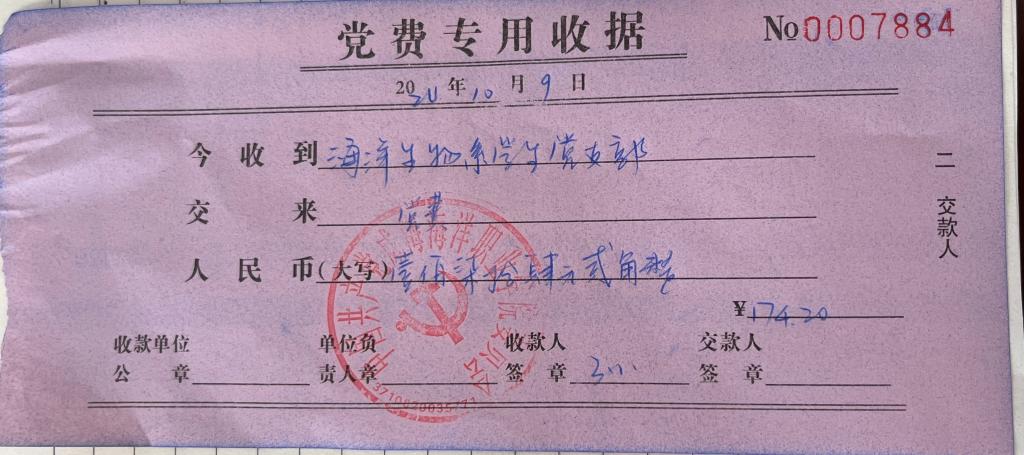 党费专用收据
No 0007884
2021年10月9日
今收到 海洋生物系学生党支部
交来 党费
人民币(大写) 壹佰柒拾肆元贰角整
¥ 174.20
收款单位 单位负 收款人 交款人
公章 责人章 签章 签章
二 交款人